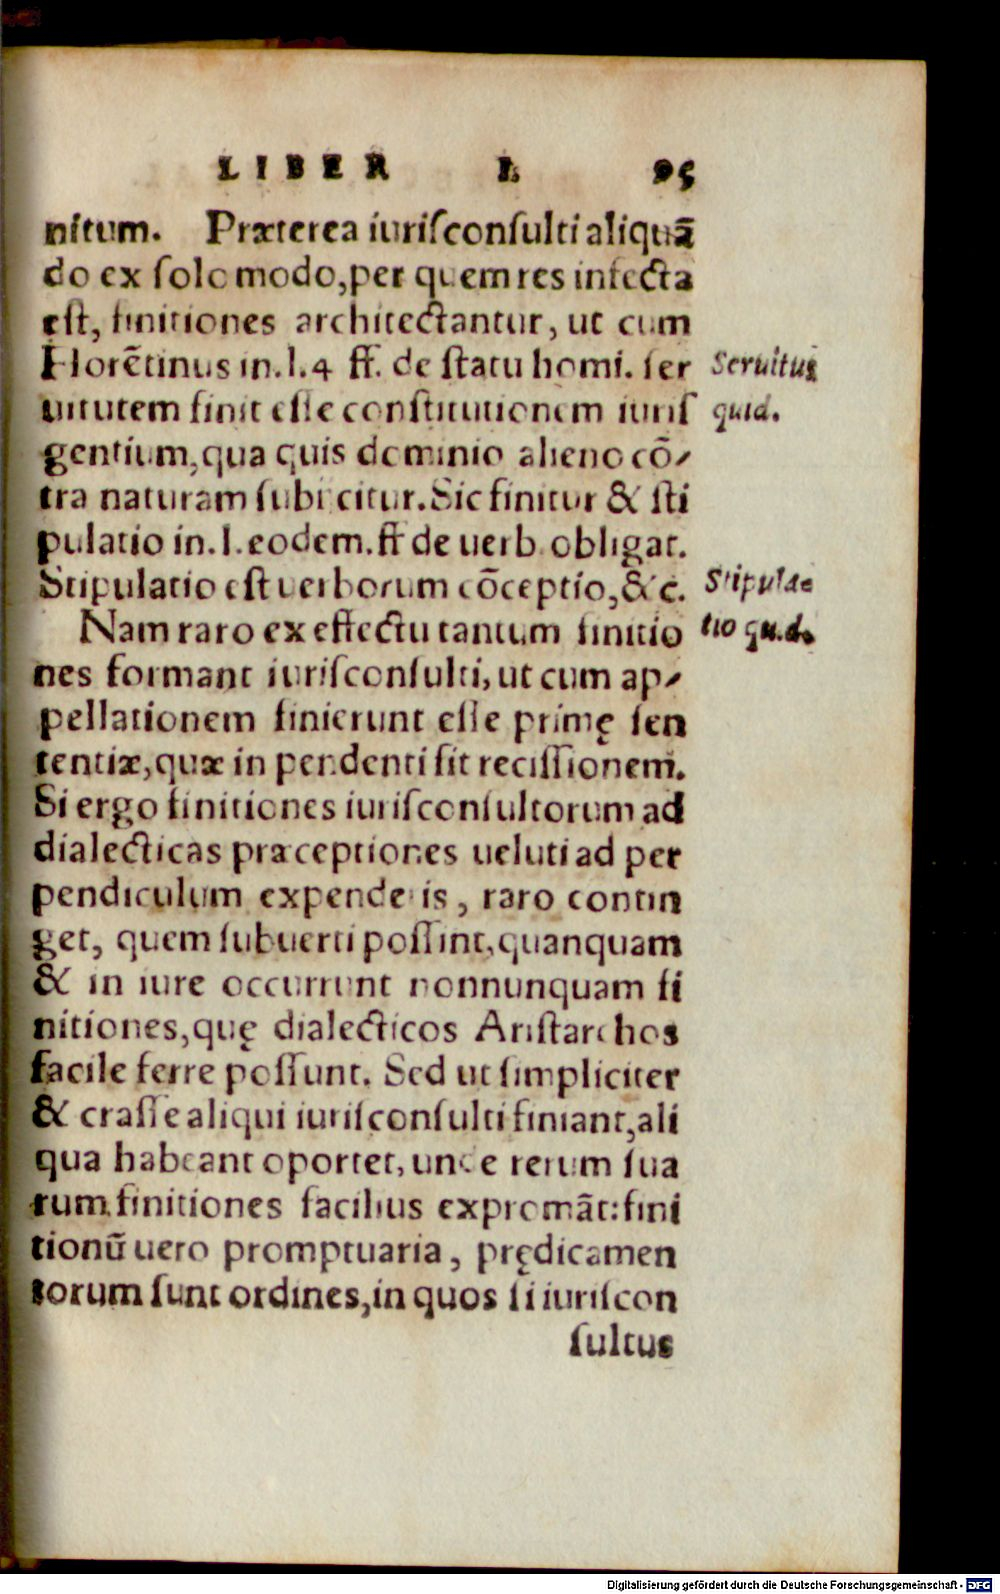 LIBER I. 95
nitum. Præterea iuriſconſulti aliquā
do ex ſolo modo, per quem res infecta
eſt, finitiones architectantur, ut cum
Florētinus in. l. 4 ff. de ſtatu homi. ſer
uitutem finit eſſe conſtitutionem iuriſ
gentium, qua quis dominio alieno cō-
tra naturam ſubiicitur. Sic finitur & ſti
pulatio in. l. eodem. ff de uerb. obligat.
Stipulatio eſt uerborum cōceptio, &c.
Nam raro ex effectu tantum finitio
nes formant iuriſconſulti, ut cum ap-
pellationem finierunt eſſe primę ſen
tentiæ, quæ in pendenti ſit reciſſionem.
Si ergo finitiones iuriſconſultorum ad
dialecticas præceptiones ueluti ad per
pendiculum expenderis, raro contin
get, quem ſubuerti poſſint, quanquam
& in iure occurrunt nonnunquam fi
nitiones, quę dialecticos Ariſtarchos
facile ferre poſſunt. Sed ut ſimpliciter
& craſſe aliqui iuriſconſulti finiant, ali
qua habeant oportet, unde rerum ſua
rum finitiones facilius expromāt: fini
tionū uero promptuaria, prędicamen
torum ſunt ordines, in quos ſi iuriſcon
ſultus
Seruitus
quid.
Stipula-
tio quid.
Digitalisierung gefördert durch die Deutsche Forschungsgemeinschaft - DFG